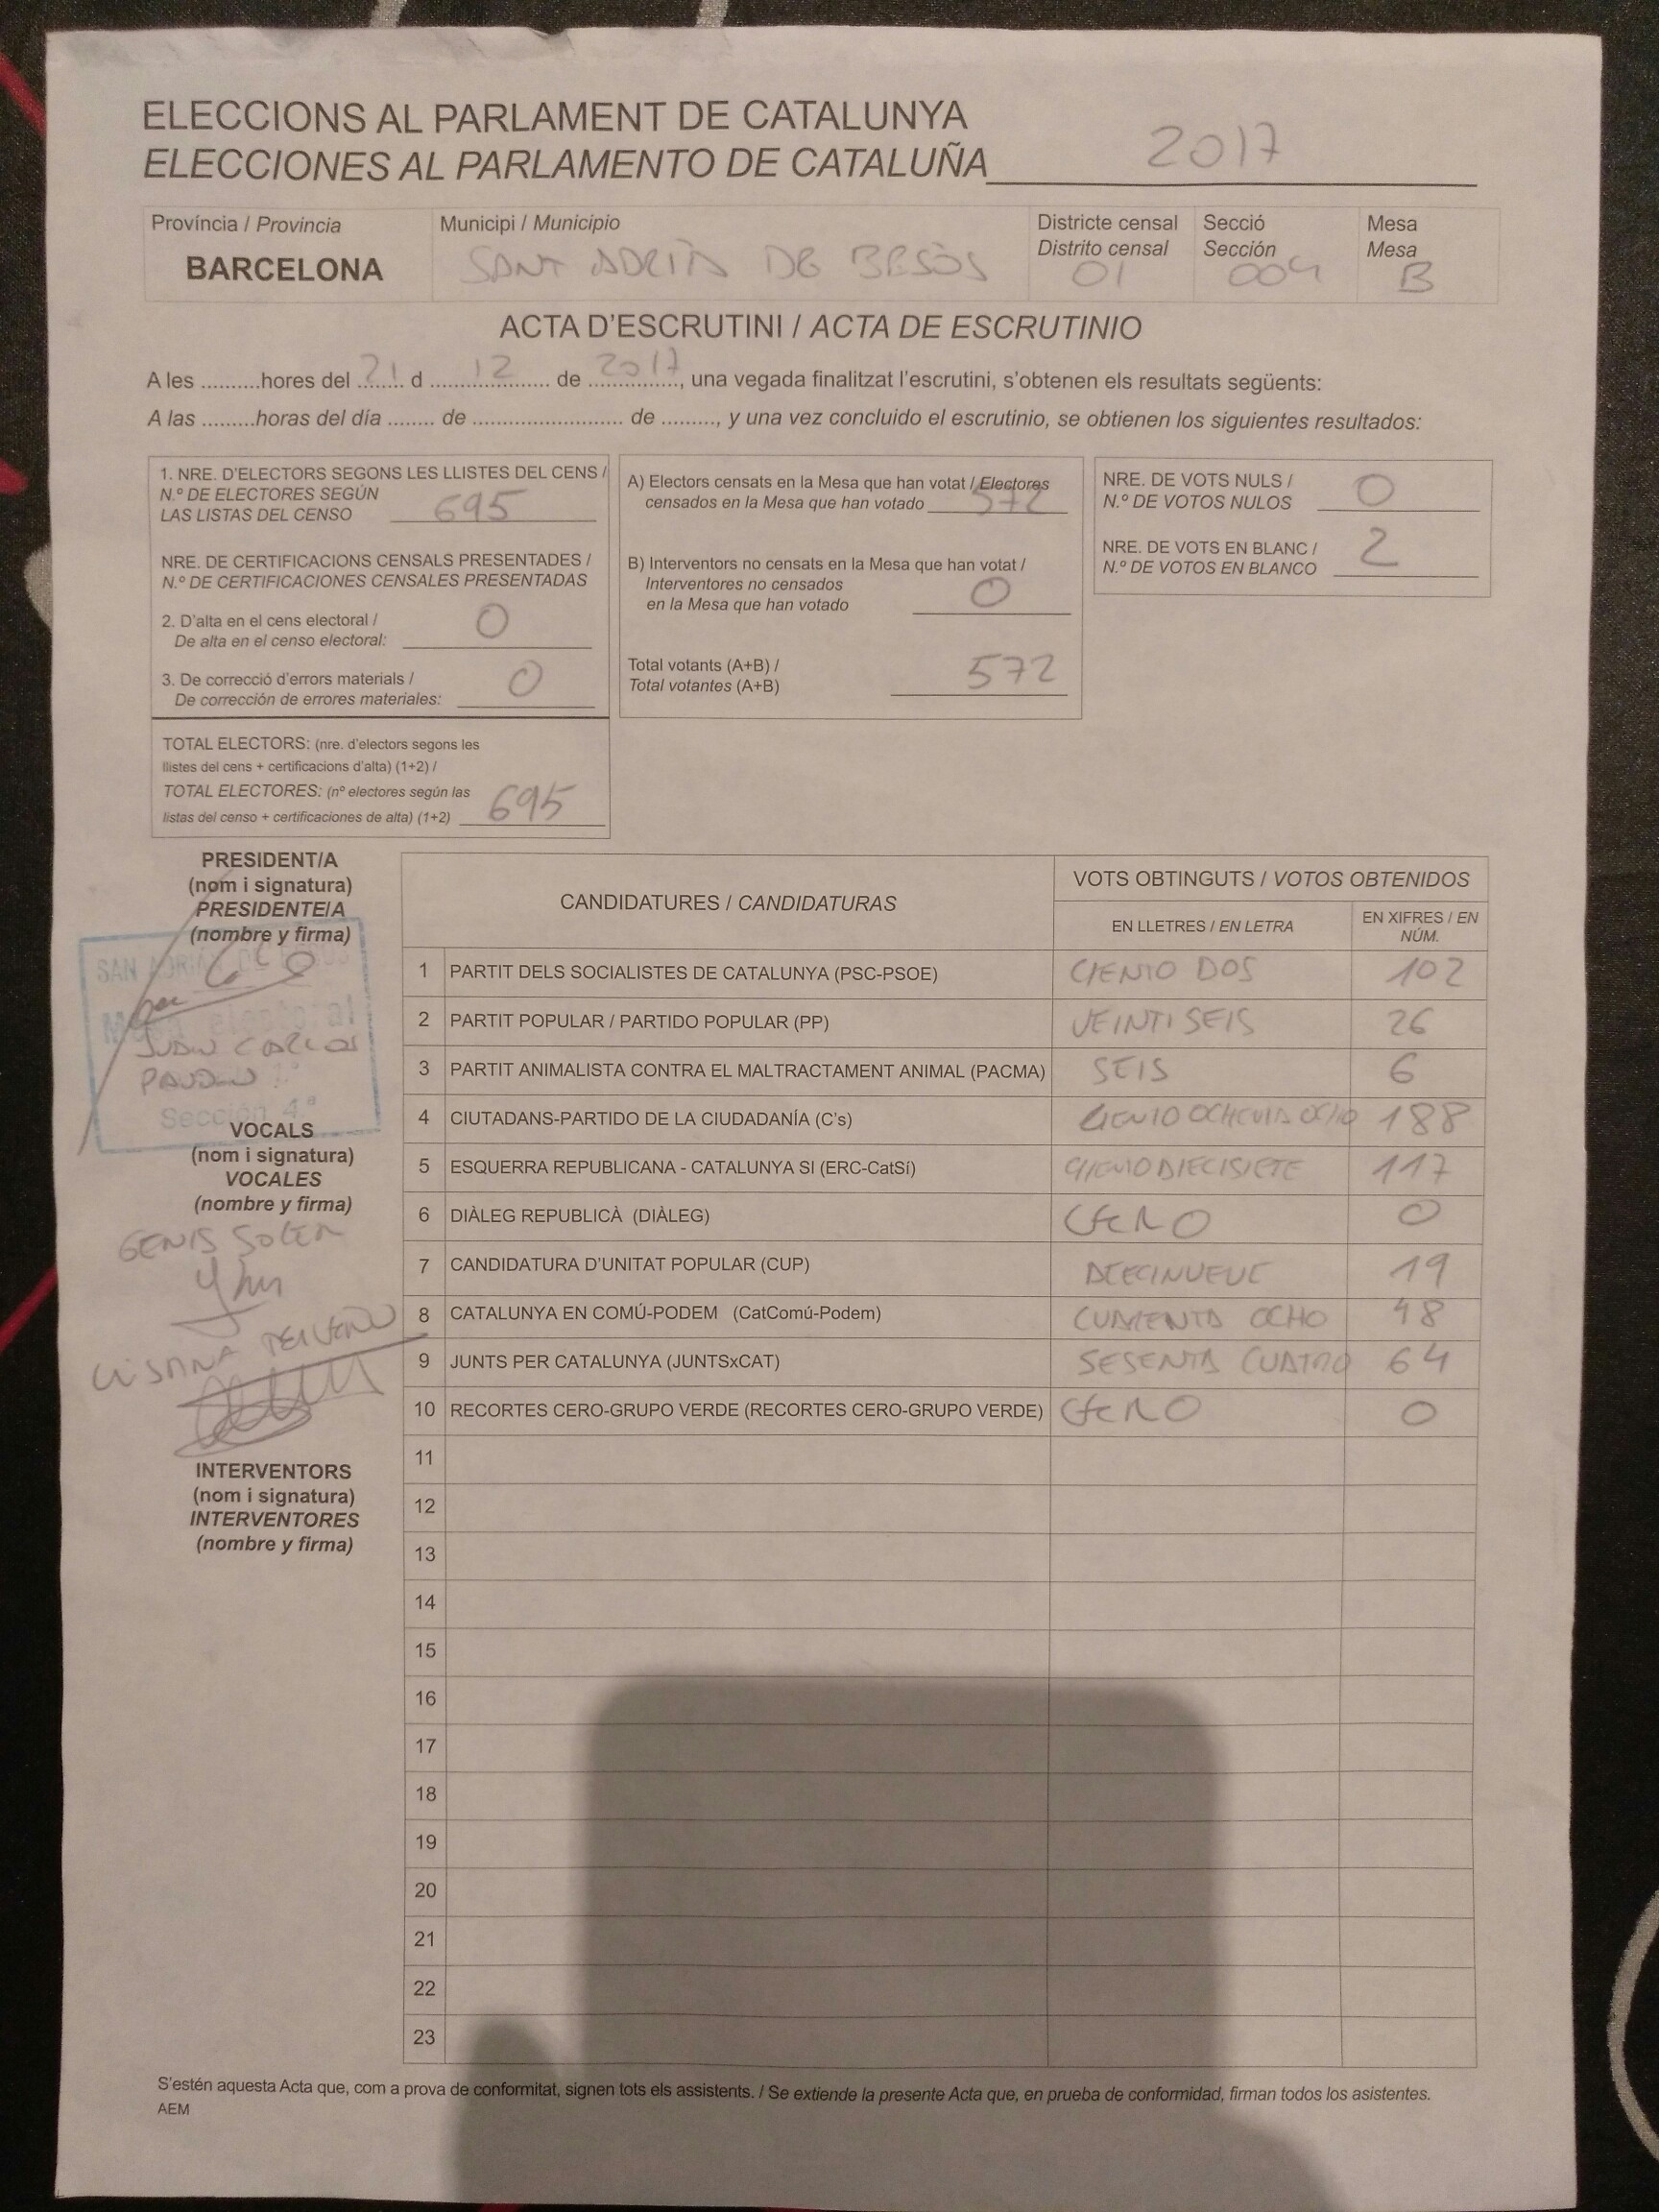 ELECCIONS AL PARLAMENT DE CATALUNYA
ELECCIONES AL PARLAMENTO DE CATALUÑA 2017
Província / Provincia
BARCELONA
Municipi / Municipio
SANT ADRIÀ DE BESÒS
Districte censal
Distrito censal
01
Secció
Sección
004
Mesa
Mesa
B
ACTA D'ESCRUTINI / ACTA DE ESCRUTINIO
A les ..........hores del 21 d 12 de 2017, una vegada finalitzat l'escrutini, s'obtenen els resultats següents:
A las .........horas del día ........ de .......................... de ........., y una vez concluido el escrutinio, se obtienen los siguientes resultados:
1. NRE. D'ELECTORS SEGONS LES LLISTES DEL CENS /
N.º DE ELECTORES SEGÚN
LAS LISTAS DEL CENSO 695
NRE. DE CERTIFICACIONS CENSALS PRESENTADES /
N.º DE CERTIFICACIONES CENSALES PRESENTADAS
2. D'alta en el cens electoral /
De alta en el censo electoral: 0
3. De correcció d'errors materials /
De corrección de errores materiales: 0
TOTAL ELECTORS: (nre. d'electors segons les
llistes del cens + certificacions d'alta) (1+2) /
TOTAL ELECTORES: (nº electores según las
listas del censo + certificaciones de alta) (1+2) 695
A) Electors censats en la Mesa que han votat / Electores
censados en la Mesa que han votado 572
B) Interventors no censats en la Mesa que han votat /
Interventores no censados
en la Mesa que han votado 0
Total votants (A+B) /
Total votantes (A+B) 572
NRE. DE VOTS NULS /
N.º DE VOTOS NULOS 0
NRE. DE VOTS EN BLANC /
N.º DE VOTOS EN BLANCO 2
PRESIDENT/A
(nom i signatura)
PRESIDENTE/A
(nombre y firma)
SAN ADRIÁN DE BESÓS
Mesa electoral
JUAN CARLOS
Sección 4.ª
VOCALS
(nom i signatura)
VOCALES
(nombre y firma)
GENIS SOLER
INTERVENTORS
(nom i signatura)
INTERVENTORES
(nombre y firma)
CANDIDATURES / CANDIDATURAS
VOTS OBTINGUTS / VOTOS OBTENIDOS
EN LLETRES / EN LETRA
EN XIFRES / EN NÚM.
1 PARTIT DELS SOCIALISTES DE CATALUNYA (PSC-PSOE) CIENTO DOS 102
2 PARTIT POPULAR / PARTIDO POPULAR (PP) VEINTISEIS 26
3 PARTIT ANIMALISTA CONTRA EL MALTRACTAMENT ANIMAL (PACMA) SEIS 6
4 CIUTADANS-PARTIDO DE LA CIUDADANÍA (C's) CIENTO OCHENTA OCHO 188
5 ESQUERRA REPUBLICANA - CATALUNYA SI (ERC-CatSí) CIENTO DIECISIETE 117
6 DIÀLEG REPUBLICÀ (DIÀLEG) CERO 0
7 CANDIDATURA D'UNITAT POPULAR (CUP) DIECINUEVE 19
8 CATALUNYA EN COMÚ-PODEM (CatComú-Podem) CUARENTA OCHO 48
9 JUNTS PER CATALUNYA (JUNTSxCAT) SESENTA CUATRO 64
10 RECORTES CERO-GRUPO VERDE (RECORTES CERO-GRUPO VERDE) CERO 0
11
12
13
14
15
16
17
18
19
20
21
22
23
S'estén aquesta Acta que, com a prova de conformitat, signen tots els assistents. / Se extiende la presente Acta que, en prueba de conformidad, firman todos los asistentes.
AEM